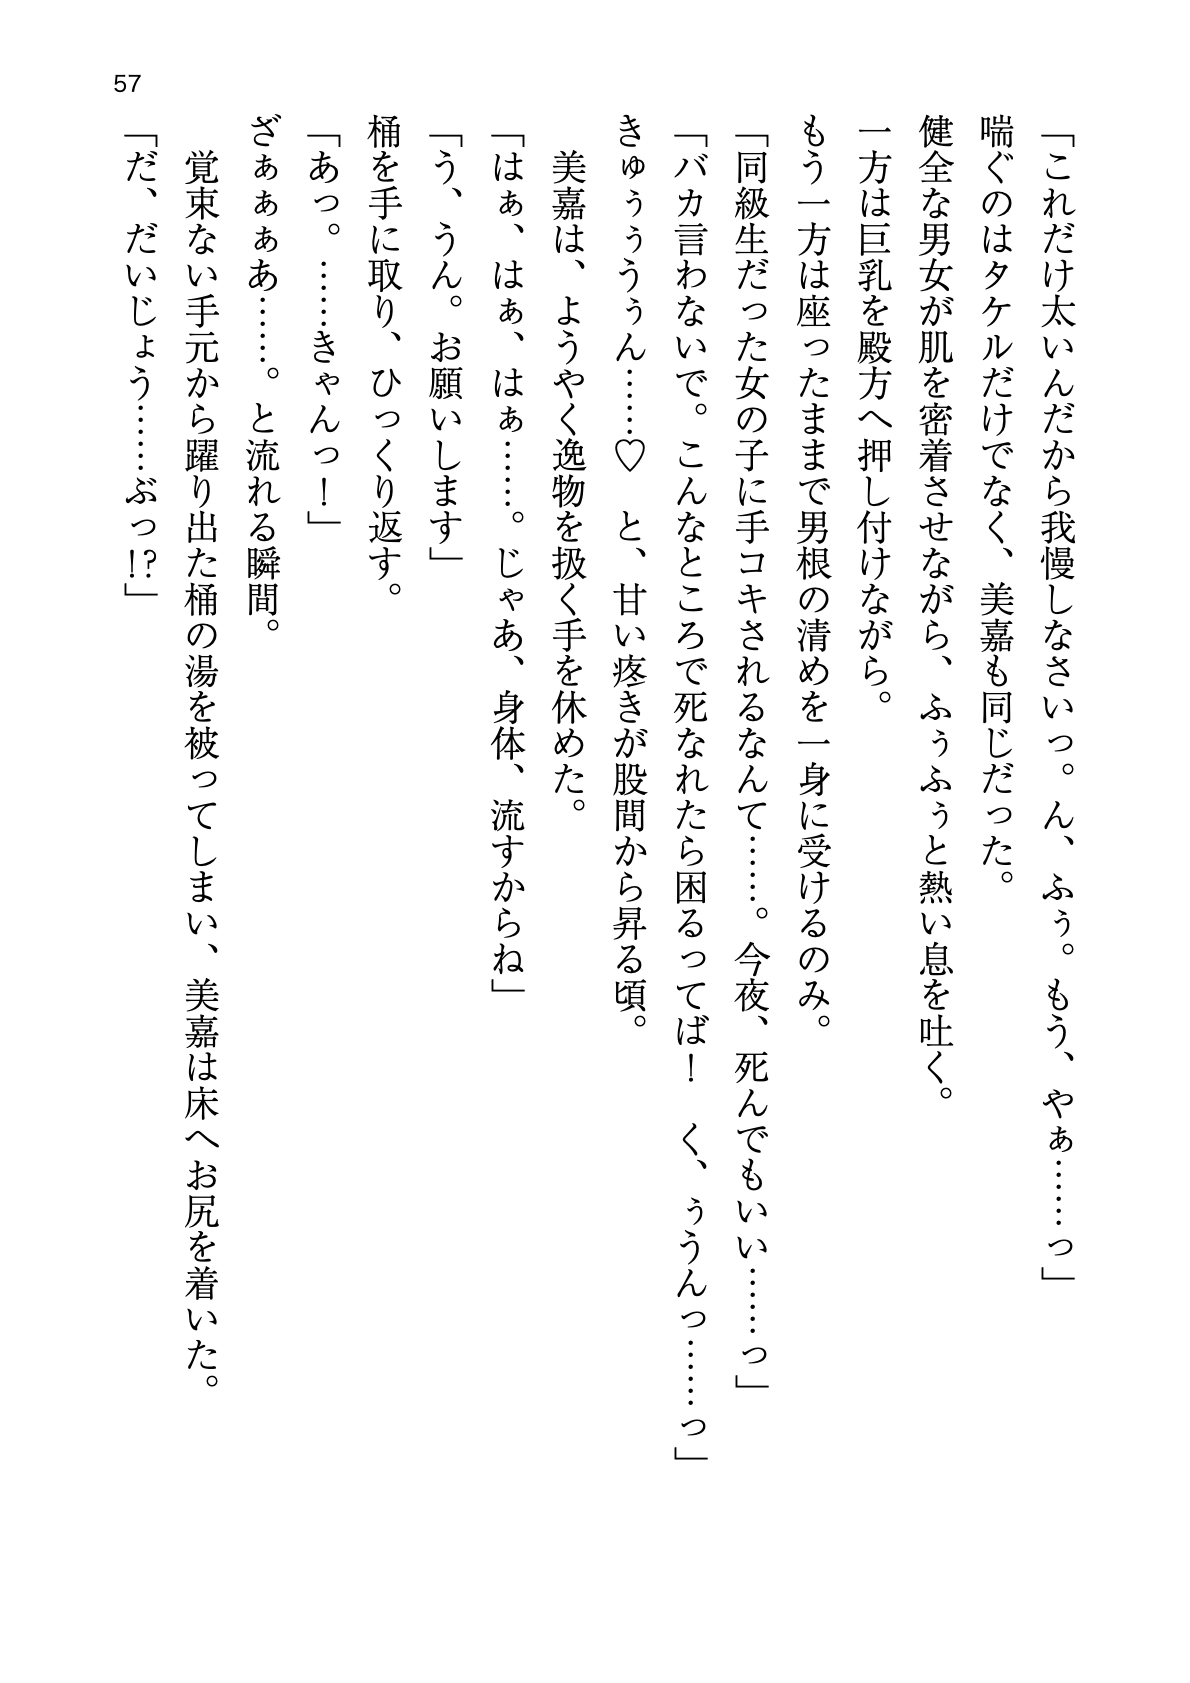 57
「これだけ太いんだから我慢しなさいっ。ん、ふぅ。もう、やぁ……っ」
喘ぐのはタケルだけでなく、美嘉も同じだった。
健全な男女が肌を密着させながら、ふぅふぅと熱い息を吐く。
一方は巨乳を殿方へ押し付けながら。
もう一方は座ったままで男根の清めを一身に受けるのみ。
「同級生だった女の子に手コキされるなんて……。今夜、死んでもいい……っ」
「バカ言わないで。こんなところで死なれたら困るってば！　く、ぅうんっ……っ」
きゅぅぅうぅん……♡　と、甘い疼きが股間から昇る頃。
　美嘉は、ようやく逸物を扱く手を休めた。
「はぁ、はぁ、はぁ……。じゃあ、身体、流すからね」
「う、うん。お願いします」
桶を手に取り、ひっくり返す。
「あっ。……きゃんっ！」
ざぁぁぁあ……。と流れる瞬間。
　覚束ない手元から躍り出た桶の湯を被ってしまい、美嘉は床へお尻を着いた。
「だ、だいじょう……ぶっ!?」